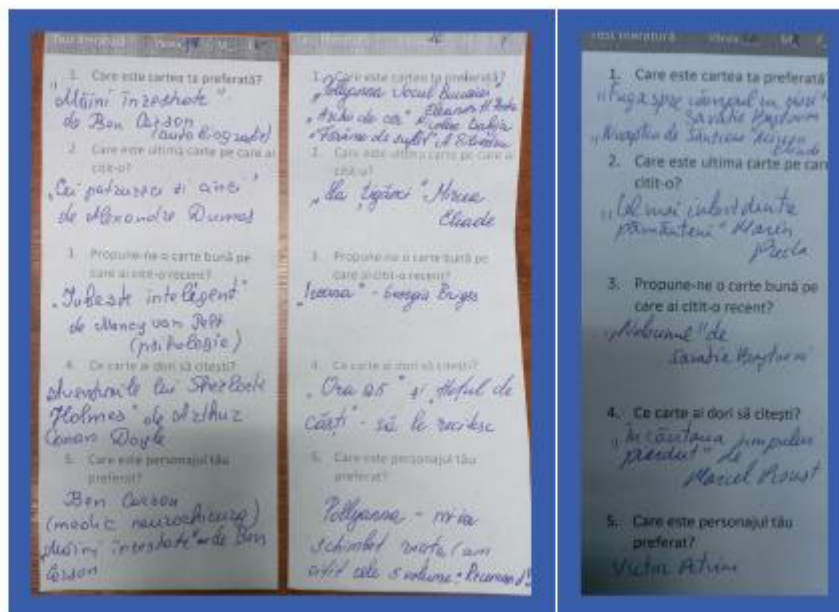 Test literatură
1. Care este cartea ta preferată?
"Mâini înzestrate"
de Ben Carson
(autobiografie)
2. Care este ultima carte pe care ai
citit-o?
"Cei patruzeci și cinci"
de Alexandre Dumas
3. Propune-ne o carte bună pe
care ai citit-o recent?
"Iubește inteligent"
de Nancy van Pelt
(psihologie)
4. Ce carte ai dori să citești?
Aventurile lui Sherlock
Holmes" de Arthur
Conan Doyle
5. Care este personajul tău
preferat?
Ben Carson
(medic neurochirurg)
de Ben
Carson
1. Care este cartea ta preferată?
"Pollyanna Jocul Bucuriei"
Eleanor H.
"Așchii de cer" Nicolae Dabija
"Fărâme de suflet"
2. Care este ultima carte pe care ai
citit-o?
"La țigănci" Mircea
Eliade
3. Propune-ne o carte bună pe
care ai citit-o recent?
4. Ce carte ai dori să citești?
"Ora 25" și "Hoțul de
cărți" - să le recitesc
5. Care este personajul tău
preferat?
Pollyanna - mi-a
schimbat viața (am
citit cele 5 volume: Recomand!
Test literatură
1. Care este cartea ta preferată
"Fuga spre câmpul cu ciori"
Savatie Baștovoi
"Noaptea de Sânziene" Mircea
Eliade
2. Care este ultima carte pe care
citit-o?
"Cel mai iubit dintre
pământeni" Marin
Preda
3. Propune-ne o carte bună pe
care ai citit-o recent?
"Nebunul" de
Savatie Baștovoi
4. Ce carte ai dori să citești?
"În căutarea timpului
pierdut" de
Marcel Proust
5. Care este personajul tău
preferat?
Victor Petrini